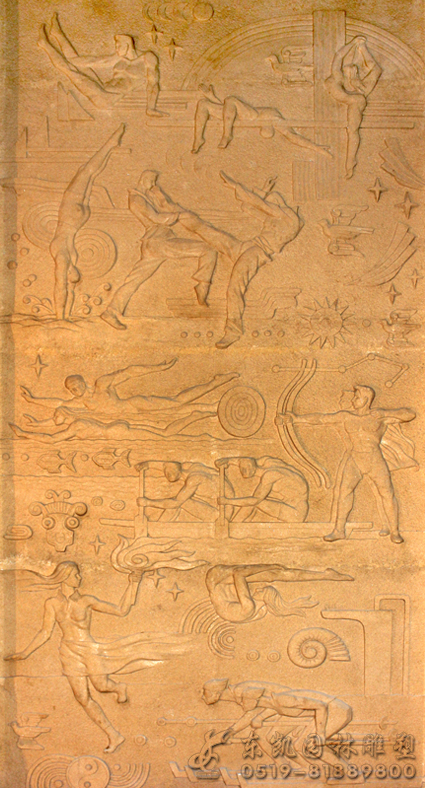 东凯园林雕塑
0519-81889800